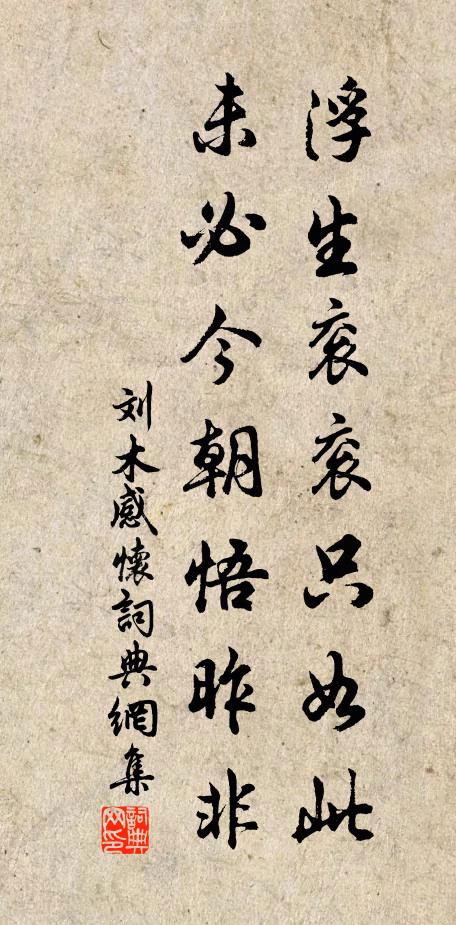 浮生衮衮只如此
未必今朝悟昨非
刘木感懷詞典網集
詞典网印